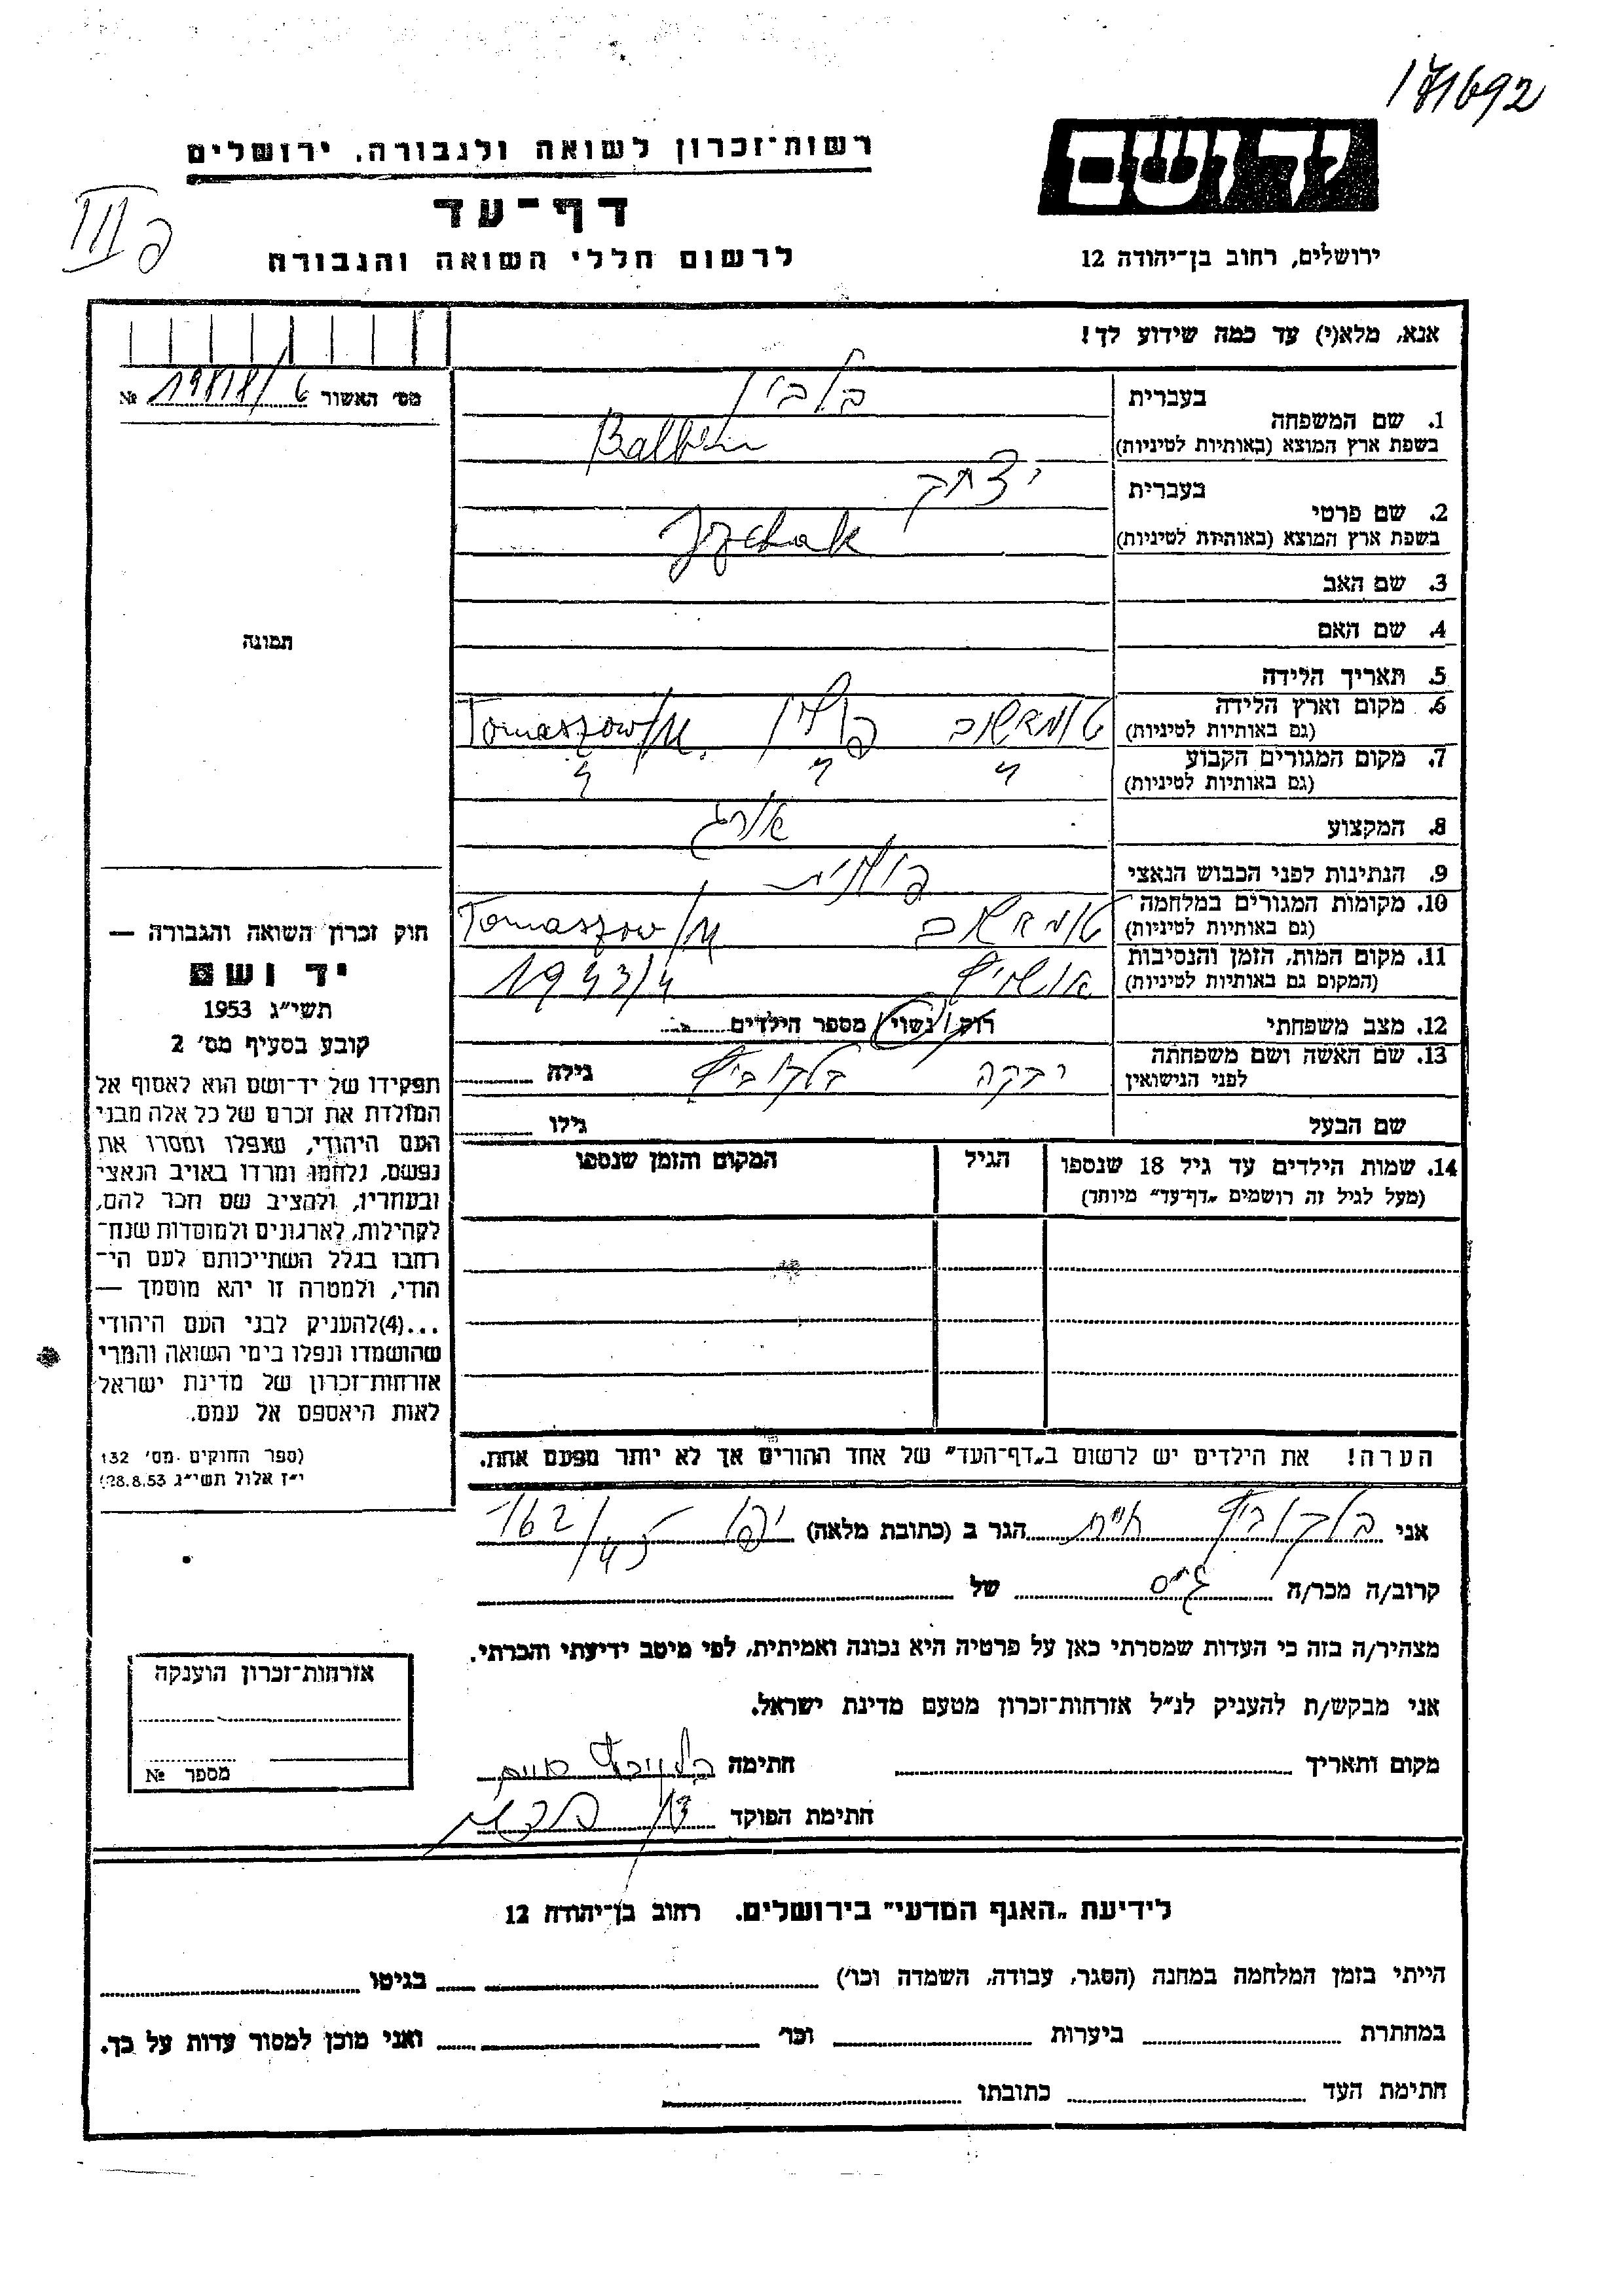 171692
רשות־זכרון לשואה ולגבורה, ירושלים
יד ושם
דף־עד
לרשום חללי השואה והגבורה
ירושלים, רחוב בן־יהודה 12
אנא, מלא(י) עד כמה שידוע לך!
מס׳ האשור №
1. שם המשפחה
בעברית בלבין
בשפת ארץ המוצא (באותיות לטיניות) Balbin
2. שם פרטי
בעברית יצחק
בשפת ארץ המוצא (באותיות לטיניות) Jzchak
3. שם האב
4. שם האם
5. תאריך הלידה
6. מקום וארץ הלידה טומאשוב פולין Tomaszow/M.
(גם באותיות לטיניות)
7. מקום המגורים הקבוע
(גם באותיות לטיניות)
8. המקצוע אורג
9. הנתינות לפני הכבוש הנאצי פולנית
10. מקומות המגורים במלחמה טומאשוב Tomaszow/M
(גם באותיות לטיניות)
11. מקום המות, הזמן והנסיבות אושויץ 1943/4
(המקום גם באותיות לטיניות)
12. מצב משפחתי רווק/נשוי/ מספר הילדים
13. שם האשה ושם משפחתה רבקה גילה
לפני הנישואין
שם הבעל גילו
14. שמות הילדים עד גיל 18 שנספו הגיל המקום והזמן שנספו
(מעל לגיל זה רושמים „דף־עד״ מיוחד)
הערה! את הילדים יש לרשום ב„דף־העד״ של אחד ההורים אך לא יותר מפעם אחת.
תמונה
חוק זכרון השואה והגבורה —
יד ושם
תשי״ג 1953
קובע בסעיף מס׳ 2
תפקידו של יד־ושם הוא לאסוף אל
המולדת את זכרם של כל אלה מבני
העם היהודי, שנפלו ומסרו את
נפשם, נלחמו ומרדו באויב הנאצי
ובעוזריו, ולהציב שם וזכר להם,
לקהילות, לארגונים ולמוסדות שנח־
רבו בגלל השתייכותם לעם הי־
הודי, ולמטרה זו יהא מוסמך —
...(4)להעניק לבני העם היהודי
שהושמדו ונפלו בימי השואה והמרי
אזרחות־זכרון של מדינת ישראל
לאות היאספם אל עמם.
(ספר החוקים מס׳ 132
י״ז אלול תשי״ג 28.8.53)
אני חיים הגר ב (כתובת מלאה) יפו 162/45
קרוב/ה מכר/ה גיס של
מצהיר/ה בזה כי העדות שמסרתי כאן על פרטיה היא נכונה ואמיתית, לפי מיטב ידיעתי והכרתי.
אני מבקש/ת להעניק לנ״ל אזרחות־זכרון מטעם מדינת ישראל.
מקום ותאריך חתימה
חתימת הפוקד
אזרחות־זכרון הוענקה
מספר №
לידיעת „האגף המדעי״ בירושלים. רחוב בן־יהודה 12
הייתי בזמן המלחמה במחנה (הסגר, עבודה, השמדה וכו׳) בגיטו
במחתרת ביערות וכו׳ ואני מוכן למסור עדות על כך.
חתימת העד כתובתו